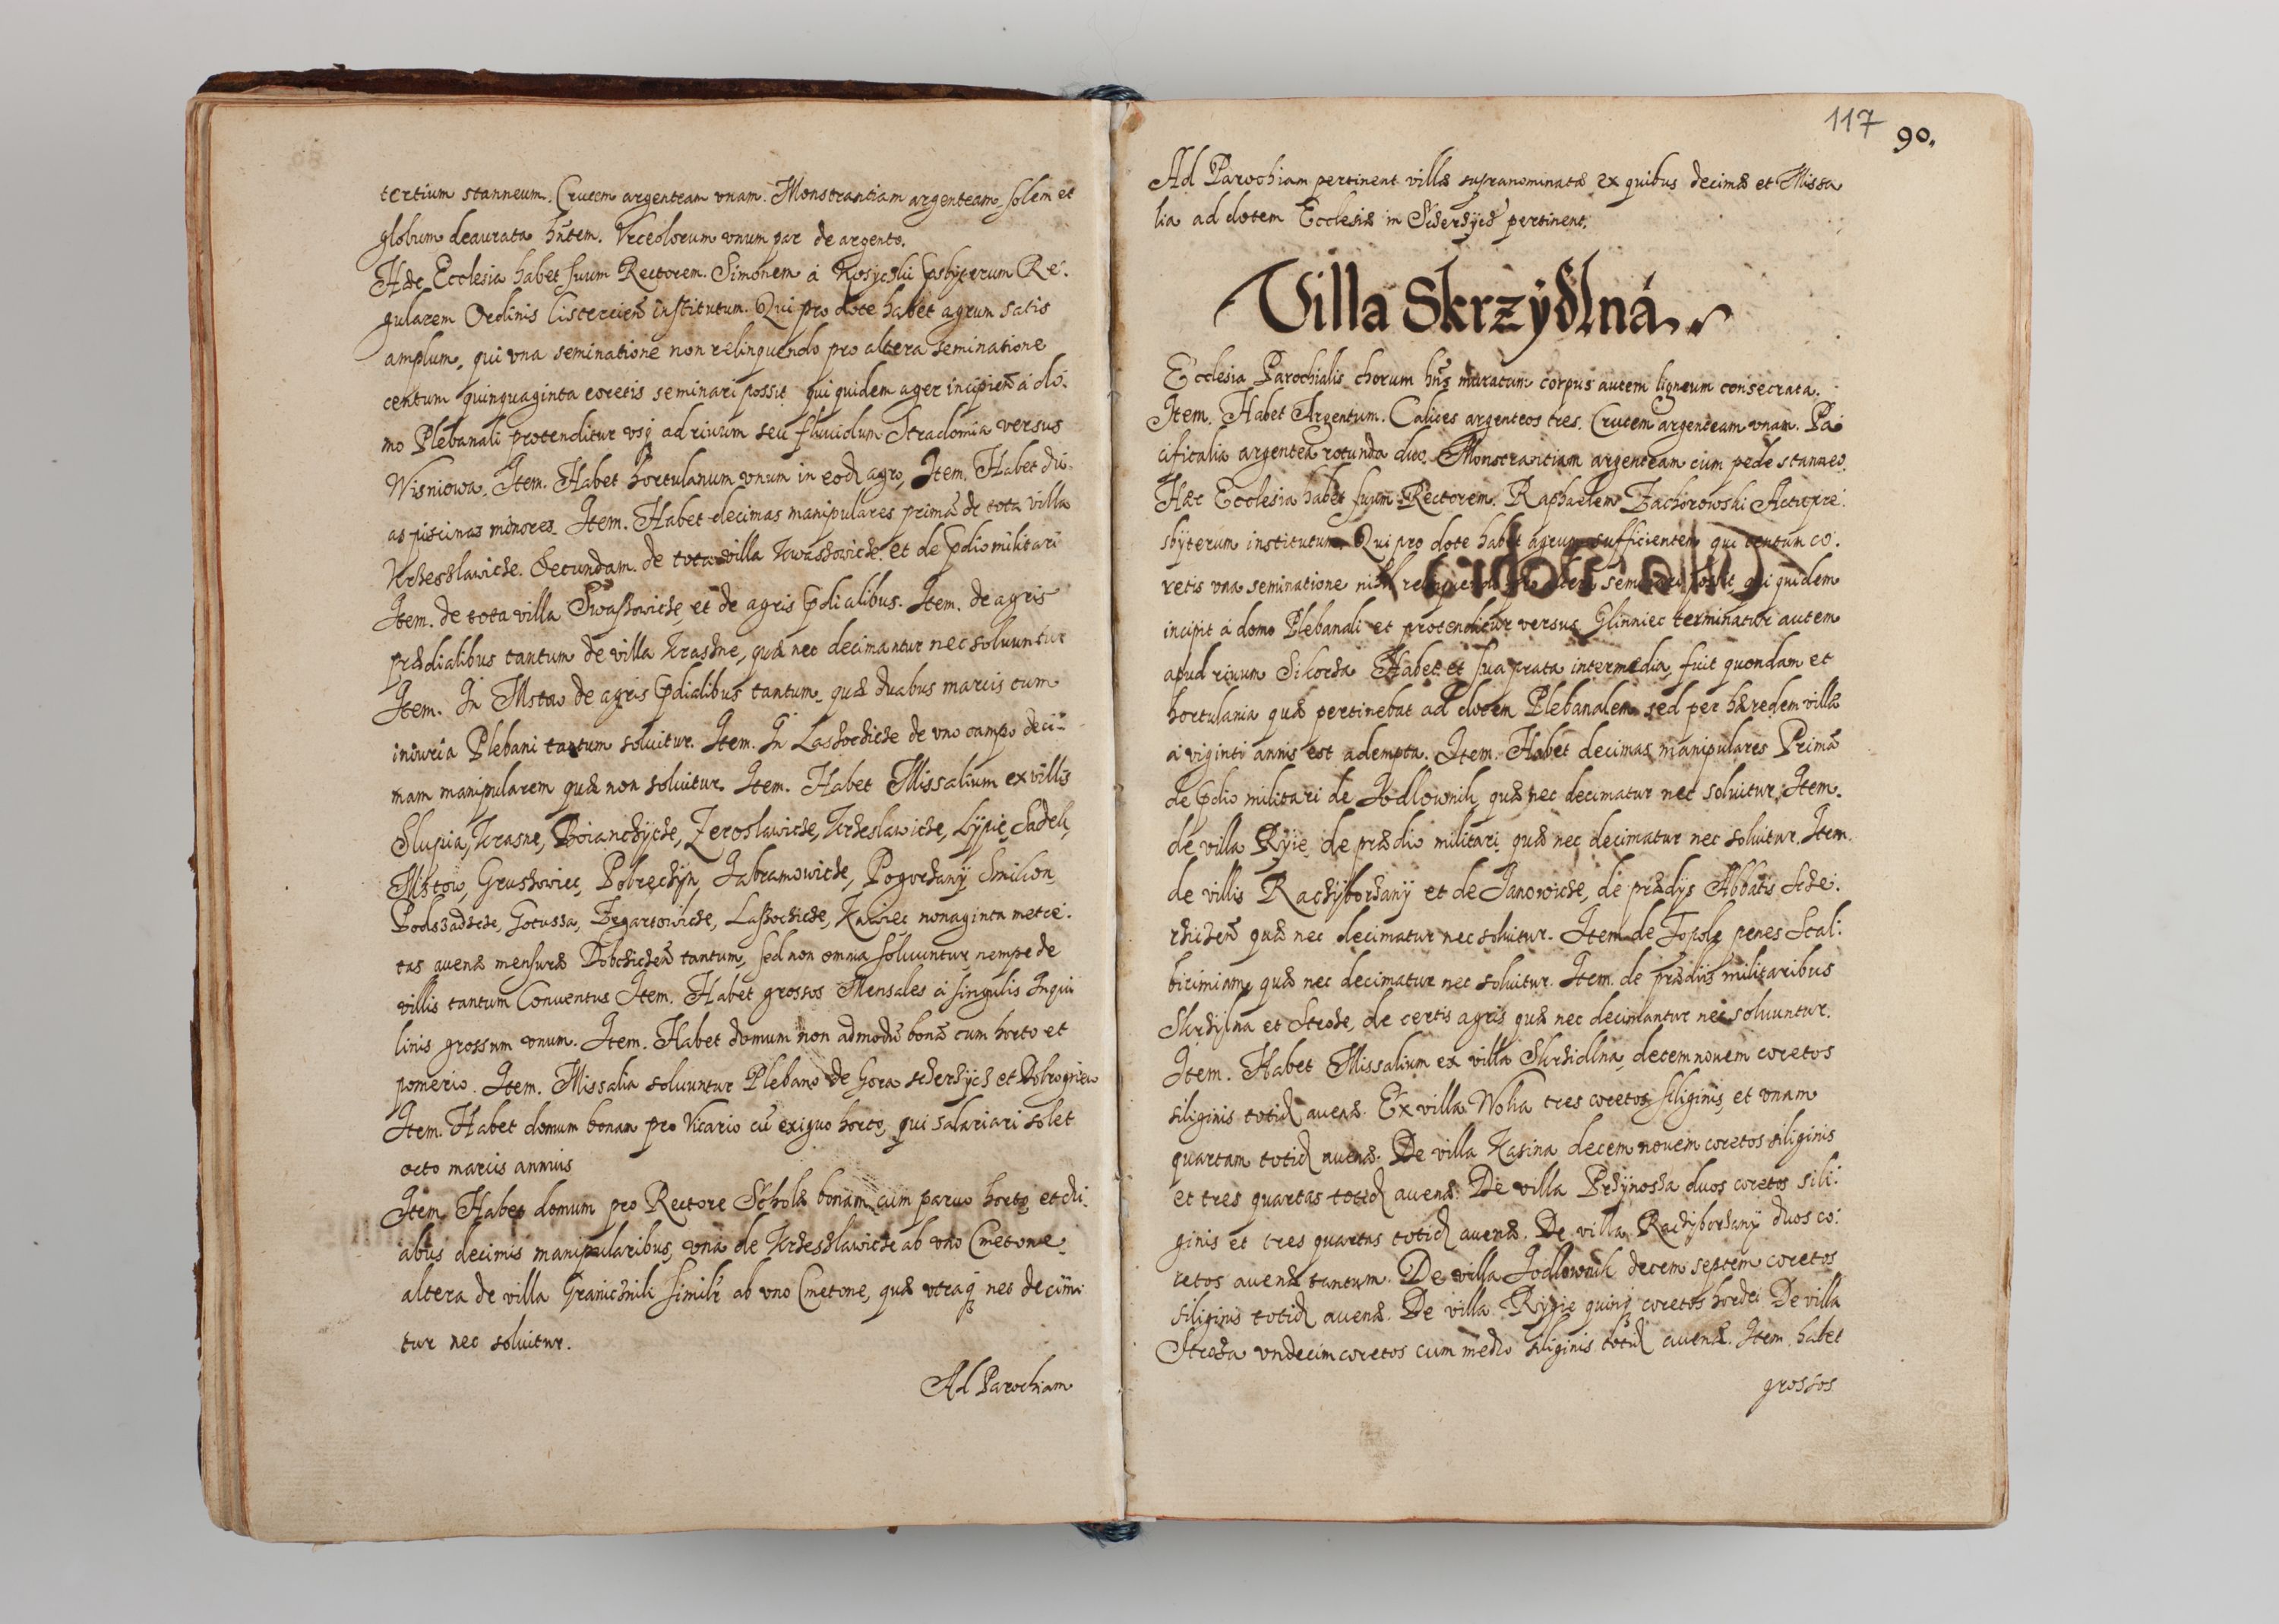 tertium stanneum. Crucem argenteam vnam. Monstrantiam argenteam, solem et
globum deaurata hñtem. Vrceolorum vnum par de argento.
Hæc Ecclesia habet suum Rectorem. Simonem à Presbyterum Re:
gularem Ordinis Cisterciens̄ institutum. Qui pro dote habet agrum satis
amplum, qui vna seminatione non relinquendo pro altera seminatione
centum quinquaginta coretis seminari possit qui quidem ager incipien̄ à do:
mo Plebanali protenditur vsq̨ ad riuum seu fluuiolum Stradomia versus
Wisniowa. Item. Habet hortulanum vnum in eod̨ agro, Item. Habet du:
as piscinas minores. Item. Habet decimas manipulares primā de tota villa
Krzeslawicze. Secundam. de tota villa et de p̄dio militari
Item. de tota villa et de agris p̄dialibus. Item. de agris
prædialibus tantum de villa Krasne, quæ nec decimantur nec soluuntur
Item. In Mstow de agris p̄dialibus tantum, quæ duabus marcis cum
iniuria Plebani tantum soluitur. Item. In de vno campo deci:
mam manipularem quæ non soluitur. Item. Habet Missalium ex villis
Slupia, Krasne, Zeroslawicze, Krzeslawicze, Lypie, Sadek,
Mstow, Gruszowiec, Pobręczyn, Jabramowicze, Pogorzany
Gotussa, Zegartowicze, Kawiec, nonaginta metre:
tas auenæ mensuræ Dobcziczen̄ tantum, sed non omnia soluuntur, nempe de
villis tantum Conuentus Item. Habet grossos Mensales à singulis Inqui
linis grossum vnum. Item. Habet domum non admodū bonā cum horto et
pomerio. Item. Missalia soluuntur Plebano de Gora et
Item. Habet domum bonam pro Vicario cū exiguo horto, qui salariari solet
octo marcis annuis
Item Habet domum pro Rectore Scholæ bonam cum paruo horto et du:
abus decimis manipularibus, vna de Krzeslawicze ab vno Cmetone,
altera de villa Granicznik similr̄ ab vno Cmetone, quæ vtraq̨ nec decima
tur nec soluitur.
Ad Parochiam
117
90.
Ad Parochiam pertinent villæ supranominatæ ex quibus decimæ et Missa
lia ad dotem Ecclesiæ in pertinent.
Villa Skrzydlná
Ecclesia Parochialis chorum hñs muratum corpus autem ligneum consecrata.
Item. Habet Argentum. Calices argenteos tres. Crucem argenteam vnam. Pa
cificalia argentea rotunda duo. Monstrantiam argenteam cum pede stanneo.
Hæc Ecclesia habet suum Rectorem. Raphaelem Actu pre:
sbyterum institutum. Qui pro dote habet agrum sufficientem qui centum co:
retis vna seminatione nihil relinquendo pro altera seminari possit, qui quidem
incipit à domo Plebanali et protenditur versus Glinniec terminatur autem
apud riuum Sikorka Habet et sua prata intermedia, fuit quondam et
hortulania quæ pertinebat ad dotem Plebanalem sed per hæredem villæ
à viginti annis est adempta. Item. Habet decimas manipulares Primā
de p̄dio militari de Jodlownik, quæ nec decimatur nec soluitur, Item.
de villa Ryie, de prædio militari quæ nec decimatur nec soluitur. Item.
de villis Raczyborzany et de Janowicze, de prædys Abbatis Scze:
quæ nec decimatur nec soluitur. Item de Topole penes Scal:
birimiam, quæ nec decimatur nec soluitur. Item. de prædiis militaribus
Skrzylna et Stroze, de certis agris quæ nec decimantur nec soluuntur.
Item. Habet Missalium ex villa Skrzidlna, decem nouem coretos
siliginis totid̨ auenæ. Ex villa Wolia tres coretos siliginis, et vnam
quartam totid̨ auenæ. De villa Kasina decem nouem coretos siliginis
et tres quartas totid̨ auenæ. De villa Przynosza duos coretos sili:
ginis et tres quartas totid̨ auenæ. De villa Raczyborzany duos co:
retos auenæ tantum. De villa Jodlownik decem septem coretos
siliginis totid̨ auenæ. De villa Rypie quinq̨ coretos hordei De villa
Stroza vndecim coretos cum medio siliginis totid̨ auenæ. Item habet
grossos